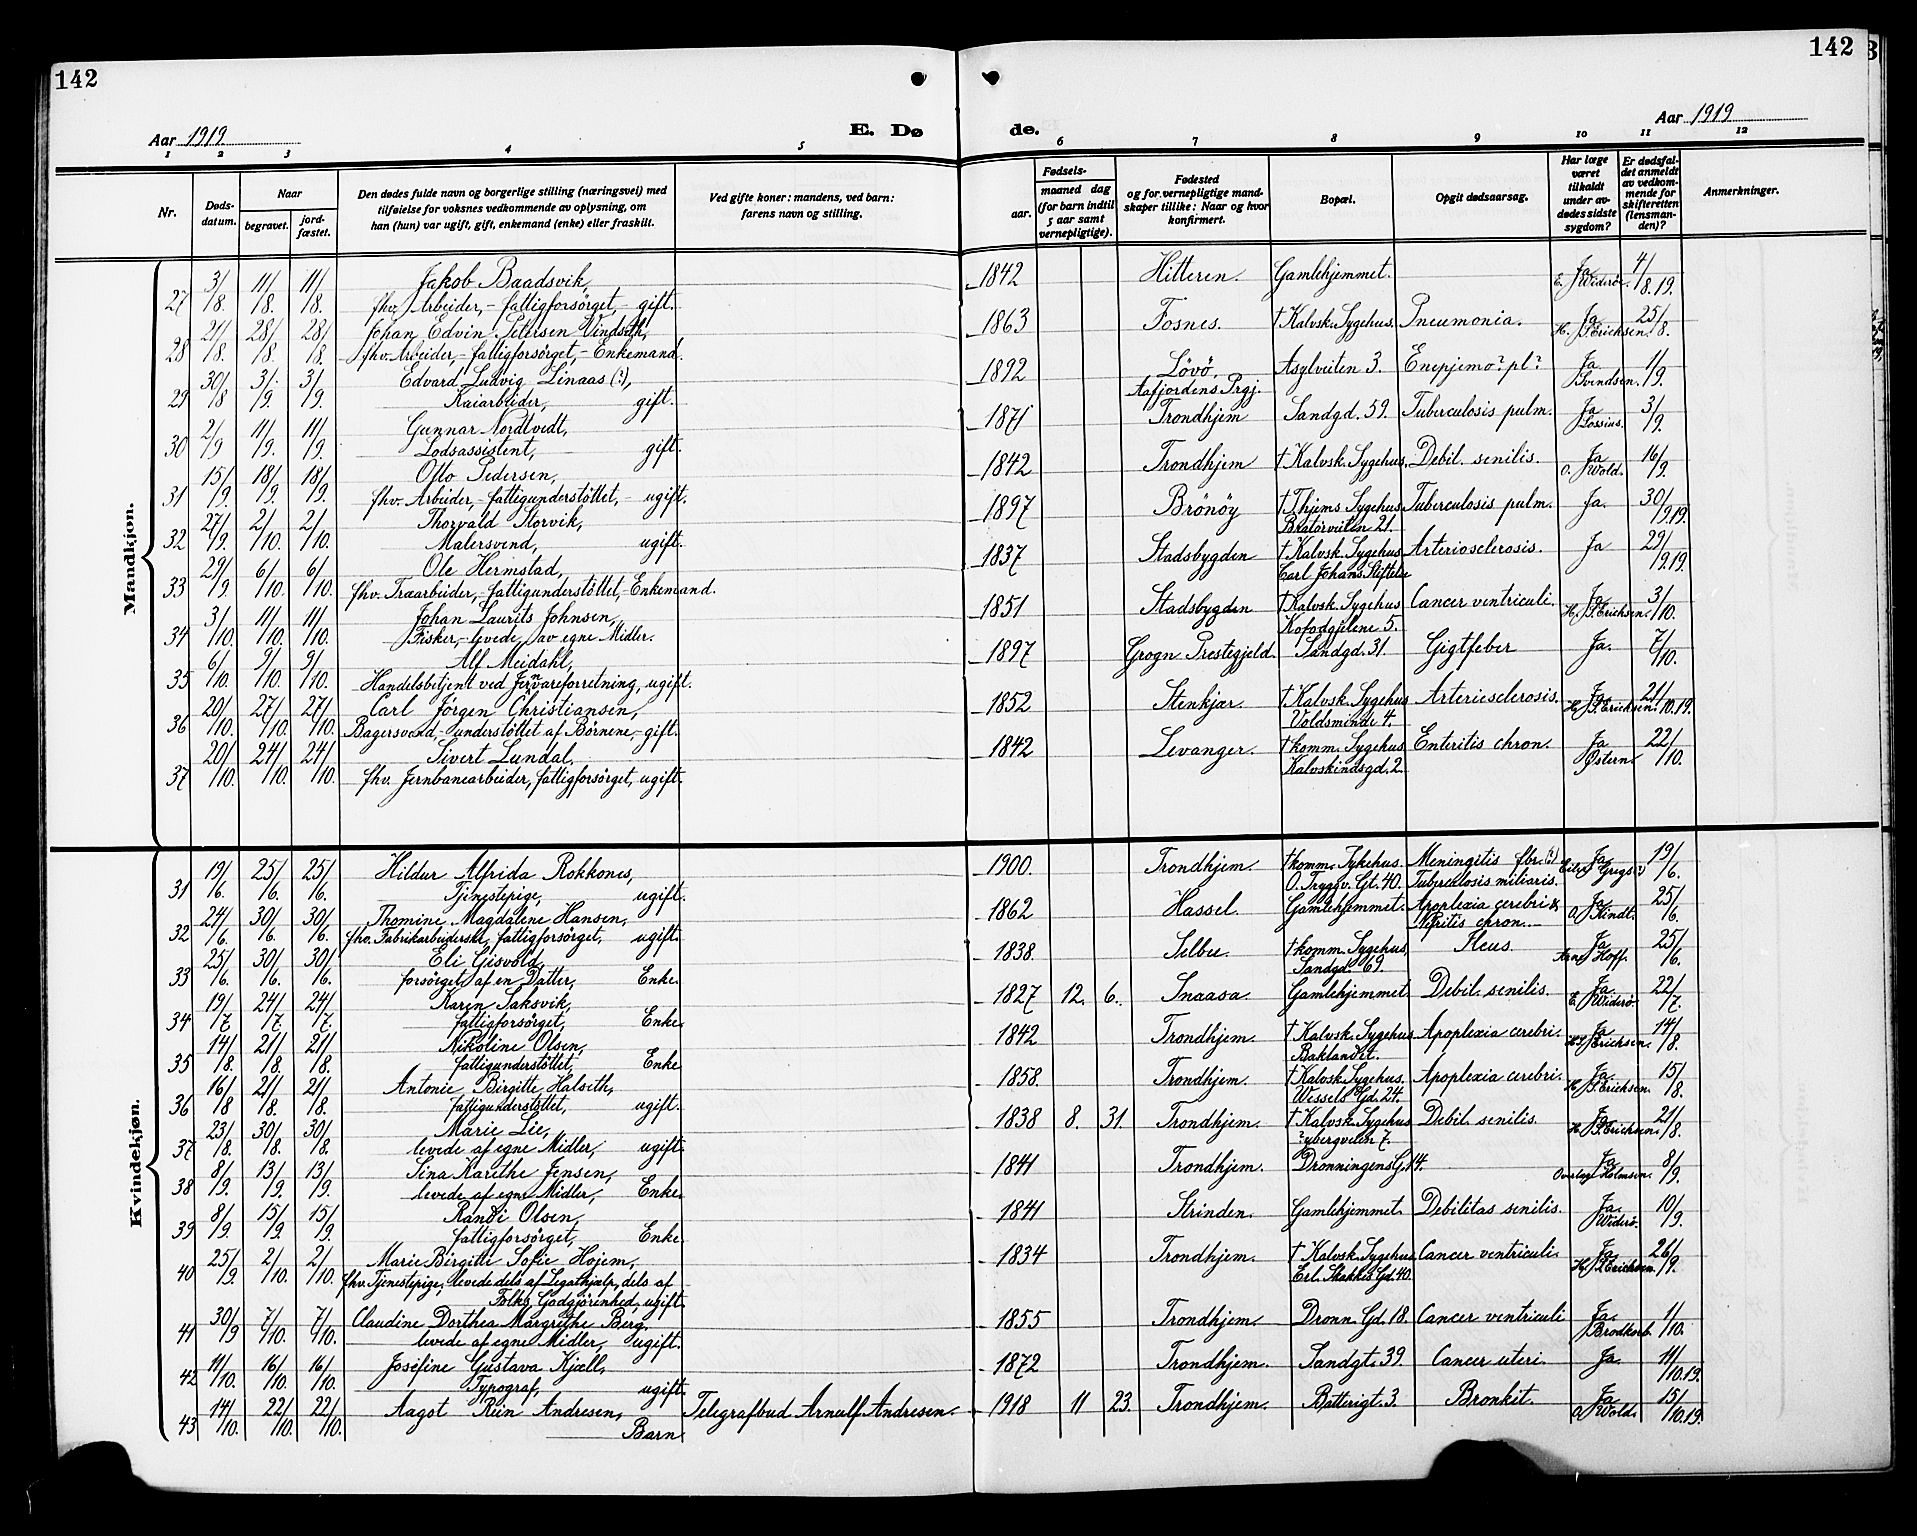 142
142
Aar 1919.
E. Dø
de.
Aar 1919
1 2 3 4 5 6 7 8 9 10 11 12
Nr.
Døds-
datum.
Naar
begravet.
jord-
fæstet.
Den dødes fulde navn og borgerlige stilling (næringsvei) med
tilføielse for voksnes vedkommende av oplysning, om
han (hun) var ugift, gift, enkemand (enke) eller fraskilt.
Ved gifte koner: mandens, ved barn:
farens navn og stilling.
Fødsels-
aar.
maaned dag
(for barn indtil
5 aar samt
vernepligtige).
Fødested
og for vernepligtige mand-
skaper tillike: Naar og hvor
konfirmert.
Bopæl.
Opgit dødsaarsag.
Har læge
været
tilkaldt
under av-
dødes sidste
sygdom?
Er dødsfal-
det anmeldt
av vedkom-
mende for
skifteretten
(lensman-
den)?
Anmerkninger.
Mandkjøn.
27 3/8 11/8. 11/8. Jakob Baadsvik, 1842 Hitteren. Gamlehjemmet. Ja 4/8.19.
fhv. Arbeider, - fattigforsörget, - gift. E. Widerö.
28 21/8. 28/8. 28/8. Johan Edvin Petersen Vindseth, 1863 Fosnes. † Kalvsk. Sygehus. Pneumonia. Ja 25/8.
fhv. Arbeider, - fattigforsörget, - Enkemand. H. J. Erichsen.
29 30/8 3/9. 3/9. Edvard Ludvig Linaas (?), 1892 Lövö, Asylveiten 3. Enepjemo? pl? Ja 1/9.
Kaiarbeider, gift. Aafjordens Prgj. Svendsen.
30 2/9 11/9. 11/9. Gunnar Nordtvedt, 1871 Trondhjem Sandgd. 59. Tuberculosis pulm. Ja 3/9.
Lodsassistent, gift. Lossius.
31 15/9. 18/9. 18/9. Otto Pedersen, 1842 Trondhjem † Kalvsk. Sygehus. Debil. senilis. Ja 16/9.
fhv. Arbeider, - fattigunderstöttet, - ugift. O. Wold.
32 27/9. 2/10. 2/10. Thorvald Storvik, 1897 Brönöy † Thjems Sygehus Tuberculosis pulm. Ja. 30/9.19.
Malersvend, ugift. Bratörveiten 21.
33 29/9. 6/10. 6/10. Ole Hermstad, 1837 Stadsbygden † Kalvsk. Sygehus Arteriosclerosis. Ja 29/9.19.
fhv. Træarbeider, - fattigunderstöttet, - Enkemand. Carl Johans Stiftelse
34 3/10. 11/10. 11/10. Johan Laurits Johnsen, 1851 Stadsbygden † Kalvsk. Sygehus Cancer ventriculi. Ja 3/10.
Fisker, - levede av egne Midler. Kofodgjelene 5. H. J. Erichsen.
35 6/10. 9/10. 9/10. Alf Meidahl, 1897 Grogn Prestegjeld. Sandgd. 31. Gigtfeber Ja. 7/10.
Handelsbetjent ved Jernvareforretning, ugift.
36 20/10. 27/10. 27/10. Carl Jörgen Christiansen, 1852 Stenkjær. † Kalvsk. Sygehus Arteriesclerosis. Ja 21/10.19.
Bagersvend, - understöttet af Börnene, - gift. Voldsminde 4. H. J. Erichsen.
37 20/10. 24/10. 24/10. Sivert Lundal, 1842 Levanger. † komm. Sygehus Enteritis chron. Ja 22/10.
fhv. Jernbanearbeider, fattigforsörget, ugift. Kalvskindsgd. 2. Östern.
Kvindekjøn.
31 19/6. 25/6. 25/6. Hildur Alfrida Rokkones, 1900. Trondhjem. † komm. Sykehus. Meningitis fbr. (?) Ja 19/6.
Tjenestepige, ugift. O. Tryggv. Gt. 40. Tuberculosis miliaris.
32 24/6. 30/6. 30/6. Thomine Magdalene Hansen, 1862 Hassel. Gamlehjemmet. Apoplexia cerebri & Ja 25/6.
fhv. Fabrikarbeiderske, fattigforsörget, ugift. Nefritis chron. O. Kindt.
33 25/6. 30/6. 30/6. Eli Gisvold, 1838. Selbu. † komm. Sygehus, Ileus. Ja 25/6.
forsörget af en Datter, Enke. Sandgd. 69. Arne Hoff.
34 19/7 24/7. 24/7. Karen Saksvik, 1827 12. 6. Snaasa. Gamlehjemmet. Debil. senilis. Ja 22/7.
fattigforsörget, Enke. E. Widerö.
35 14/8. 21/8. 21/8. Nikoline Olsen, 1842 Trondhjem. † Kalvsk. Sygehus Apoplexia cerebri. Ja 14/8.
fattigunderstöttet, Enke Baklandet. H. J. Erichsen.
36 16/8 21/8. 21/8. Antonie Birgitte Halseth, 1858. Trondhjem. † Kalvsk. Sygehus. Apoplexia cerebri. Ja. 15/8.
fattigunderstöttet, ugift. Wessels Gd. 24. H. J. Erichsen.
37 23/8. 30/8. 30/8. Marie Lie, 1838 8. 31. Trondhjem. † Kalvsk. Sygehus Debil. senilis. Ja 21/8.
levede af egne Midler, ugift. ?ybergveien 7. H. J. Erichsen.
38 8/9. 13/9. 13/9. Sina Karethe Jensen, 1841 Trondhjem. Dronningens G. 14. Ja 8/9.
levede af egne Midler, Enke. Overlæge Holmsen.
39 8/9. 15/9. 15/9. Randi Olsen, 1841 Strinden. Gamlehjemmet. Debilitas senilis. Ja. 10/9.
fattigforsörget, Enke. Widerö.
40 25/9. 2/10. 2/10. Marie Birgitte Sofie Hojem, 1834 Trondhjem. † Kalvsk. Sygehus Cancer ventriculi. Ja. 26/9.
fhv. Tjenestepige, levede dels af Legathjælp, dels af Erl. Skakkes Gd. 40. H. J. Erichsen.
Folks Godgjörenhed, ugift.
41 30/9 7/10. 7/10. Claudine Dorthea Margrethe Berg, 1855 Trondhjem. Dronn. Gd. 18. Cancer ventriculi Ja. 1/10.
levede af egne Midler, ugift. Brodkorb.
42 11/10. 16/10. 16/10. Josefine Gustava Kjæll, 1872 Trondhjem. Sandgt. 39. Cancer uteri. Ja. 11/10.19.
Typograf, ugift.
43 14/10. 22/10. 22/10. Aagot Rein Andresen, Telegrafbud Arnulf Andresen. 1918 11 23. Trondhjem. Batterigt. 3. Bronkit. Ja 15/10.19.
Barn. O. Wold.